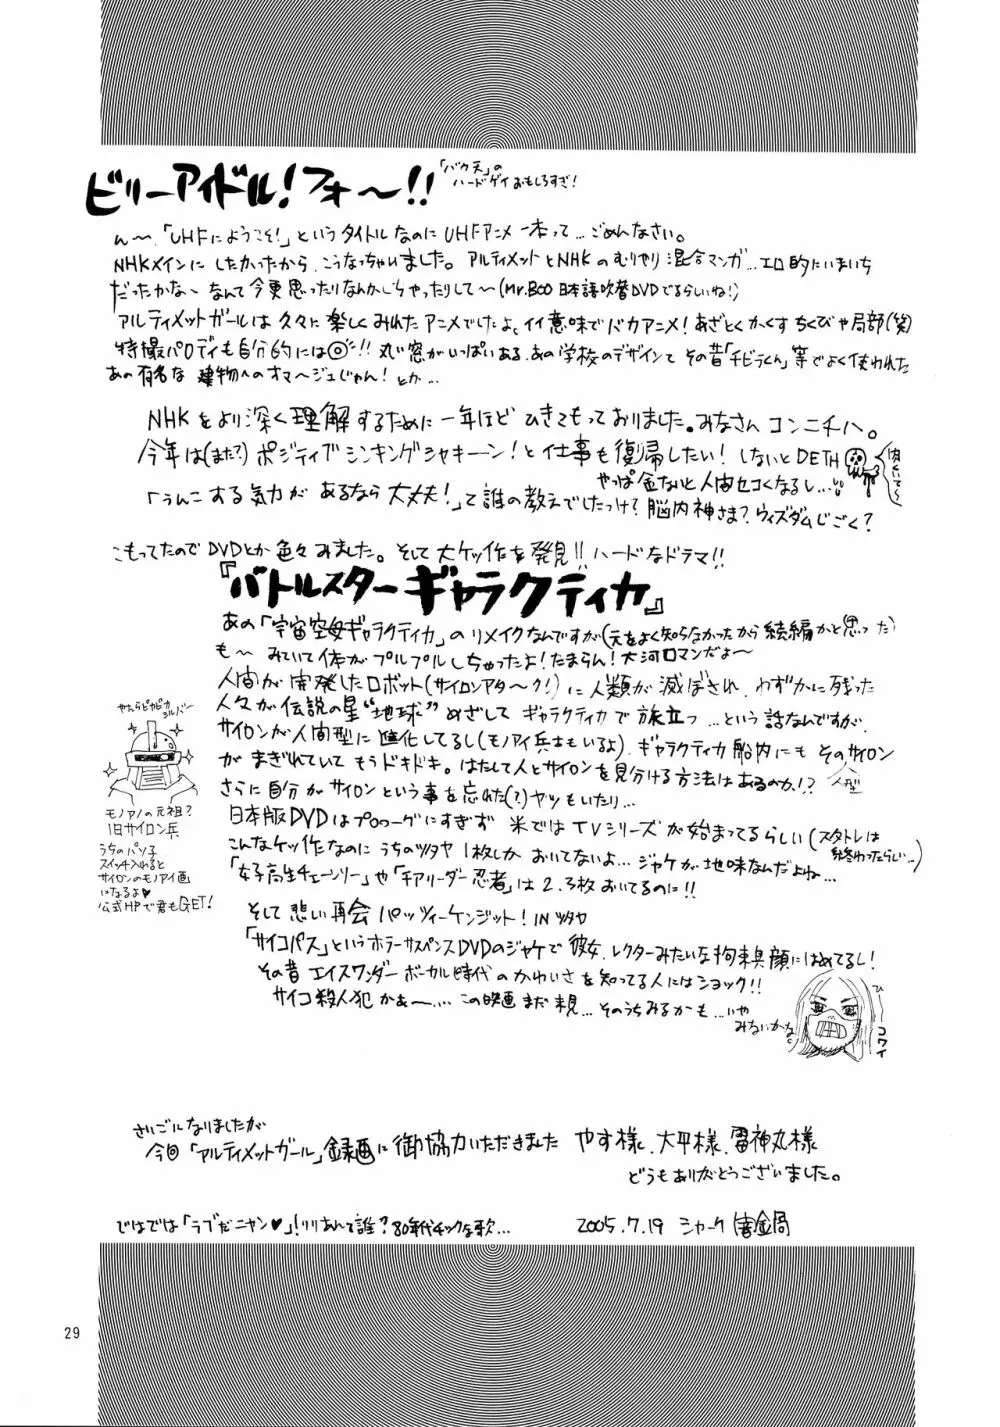 ビリーアイドル!フォ〜!!
「バク天」の
ハードゲイおもしろすぎ!
ん〜、「UHFにようこそ!」というタイトルなのにUHFアニメ一本って…ごめんなさい。
NHKメインにしたかったから、こうなっちゃいました。アルティメットとNHKのむりやり混合マンガ…エロ的にいまいち
だったかな〜なんて今更思ったりなんかしちゃったりして〜(Mr.BOO日本語吹替DVDでるらしいね!)
アルティメットガールは久々に楽しくみれたアニメでしたよ、イイ意味でバカアニメ!あざとくかくすちくびや局部(笑)
特撮パロディも自分的には◎!!丸い窓がいっぱいある、あの学校のデザインて その昔「チビラくん」等でよく使われた
あの有名な 建物へのオマージュじゃん!とか…
NHKをより深く理解するために一年ほどひきこもっておりました。みなさんコンニチハ。
今年は(また?)ポジティブシンキングシャキーン!と仕事も復帰したい!しないとDETH
やっぱ金ないと人間セコくなるし…
「うんこする気力があるなら大丈夫!」って誰の教えでしたっけ?脳内神さま?ウィズダムじごく?
こもってたのでDVDとか色々みました。そして大ケッ作を発見!!ハードなドラマ!!
『バトルスターギャラクティカ』
あの「宇宙空母ギャラクティカ」のリメイクなんですが(元をよく知らなかったから続編かと思った)
も〜みていて体がプルプルしちゃったよ!たまらん!大河ロマンだよ〜
人間が開発したロボット(サイロンアタ〜ク!)に人類が滅ぼされ、わずかに残った
人々が伝説の星“地球”めざしてギャラクティカで旅立つ…という話なんですが
サイロンが人間型に進化してるし(モノアイ兵士もいるよ)、ギャラクティカ船内にもそのサイロン
人型
がまぎれていてもうドキドキ。はたして人とサイロンを見分ける方法はあるのか!?
さらに自分がサイロンという事を忘れた(?)ヤツもいたり…
日本版DVDはプロローグにすぎず 米ではTVシリーズが始まってるらしい(スタトレは
終わったらしい…)
こんなケッ作なのにうちのツタヤ1枚しかおいてないよ…ジャケが地味なんだよね…
「女子高生チェーンソー」や「チアリーダー忍者」は2、3枚おいてるのに!!
やたらピカピカ
シルバー
モノアイの元祖?
旧サイロン兵
うちのパソ子
スイッチ入れると
サイロンのモノアイ画
になるよ♥
公式HPで君もGET!
そして悲しい再会 パッツィーケンジット!INツタヤ
「サイコパス」というホラーサスペンスDVDのジャケで彼女、レクターみたいな拘束具顔にはめてるし!
その昔エイスワンダーボーカル時代のかわいさを知ってる人にはショック!!
サイコ殺人犯かぁ〜…この映画まだ未見…そのうちみるかも…いや
みないかな。
ひー
コワイ
さいごになりましたが
今回「アルティメットガール」録画に御協力いただきました やす様、大平様、雷神丸様
どうもありがとうございました。
ではでは「ラブだニャン♥」!りりあんて誰?80年代チックな歌…
2005.7.19 シャーク
29